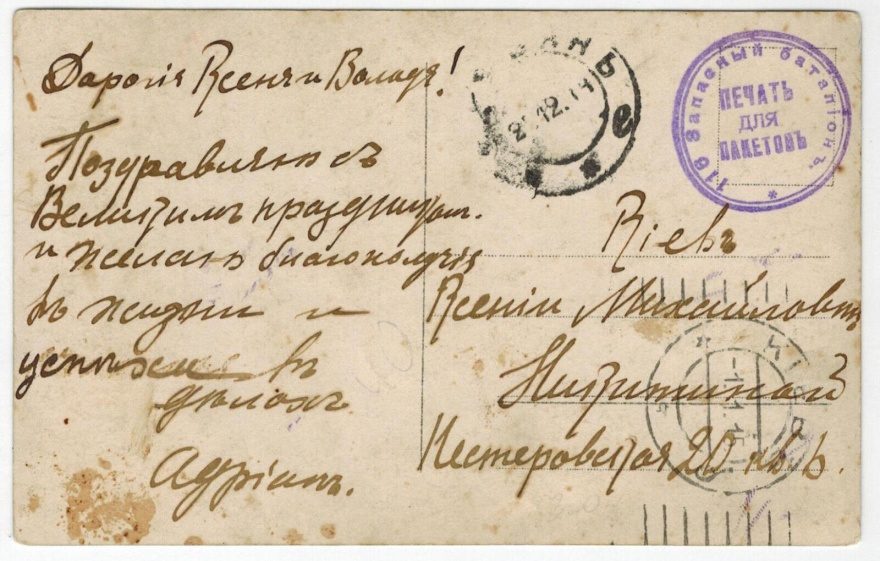 Дарогія Ксеня и Володя!
Поздравляю съ
Великимъ праздникомъ
и желаю благополучія
въ жизни и
успѣха въ
дѣлахъ
Адріанъ.
2 .12.14
е
116 Запасный баталіонъ.
ПЕЧАТЬ
ДЛЯ
ПАКЕТОВЪ
Кіевъ
Ксеніи Михайловнѣ
Никитиной
Нестеровская 20 кв. 6.
КІЕВ